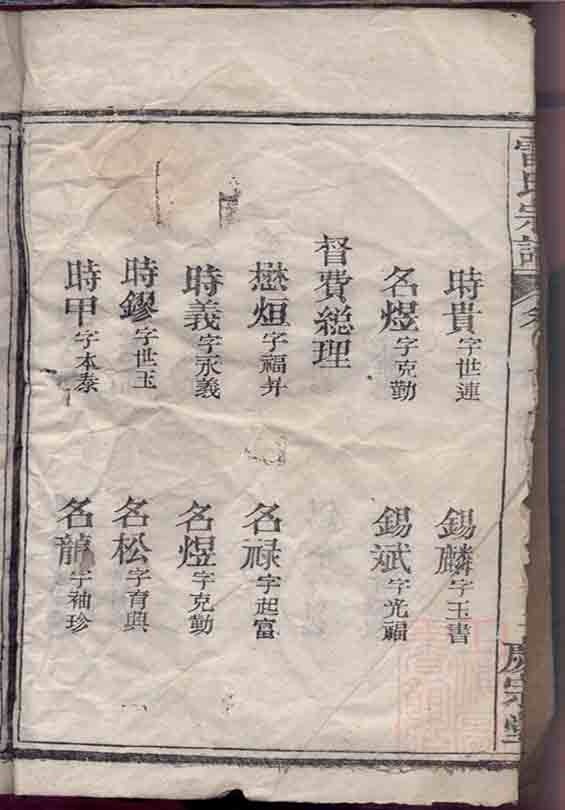 雷氏宗譜 卷
慶宗堂
時貴字世連 錫麟字玉書
名煜字克勤 錫斌字光福
督費總理
懋烜字福升 名祿字起富
時義字永義 名煜字克勤
時鏐字世玉 名松字育興
時甲字本泰 名龍字袖珍